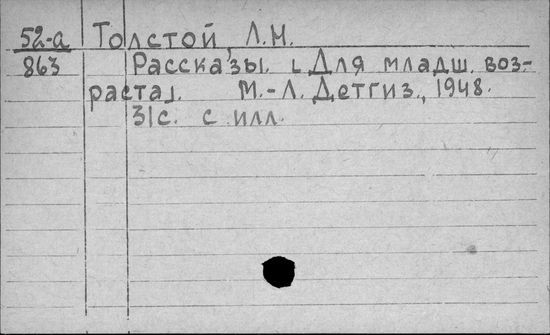 52-а Толстой, Л.Н.
863 Рассказы. [Для младш. воз-
раста]. М.-Л. Детгиз., 1948.
31с. с илл.